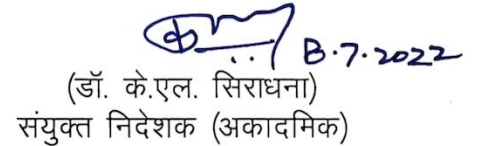 8.7.2022
(डॉ. के.एल. सिराधना)
संयुक्त निदेशक (अकादमिक)